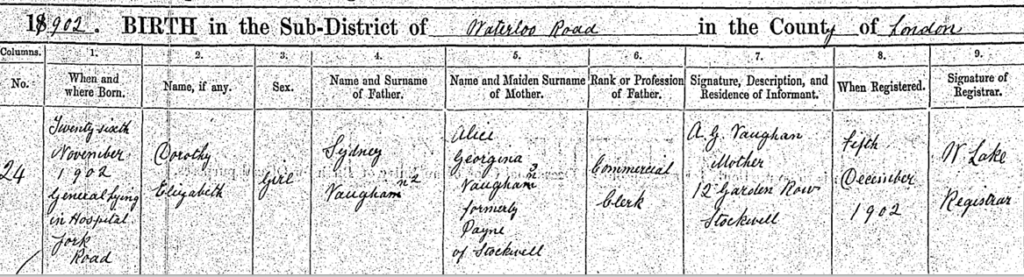 18902. BIRTH in the Sub-District of Waterloo Road in the County of London
Columns. 1. 2. 3. 4. 5. 6. 7. 8. 9.
No. When and where Born. Name, if any. Sex. Name and Surname of Father. Name and Maiden Surname of Mother. Rank or Profession of Father. Signature, Description, and Residence of Informant. When Registered. Signature of Registrar.
24
Twenty sixth
November
1902
General Lying
in Hospital
York
Road
Dorothy
Elizabeth
Girl
Sydney
Vaugham n2
Alice
Georgina
Vaugham n2
formerly
Payne
of Stockwell
Commercial
Clerk
A. G. Vaughan
Mother
12 Garden Row
Stockwell
Fifth
December
1902
W Lake
Registrar